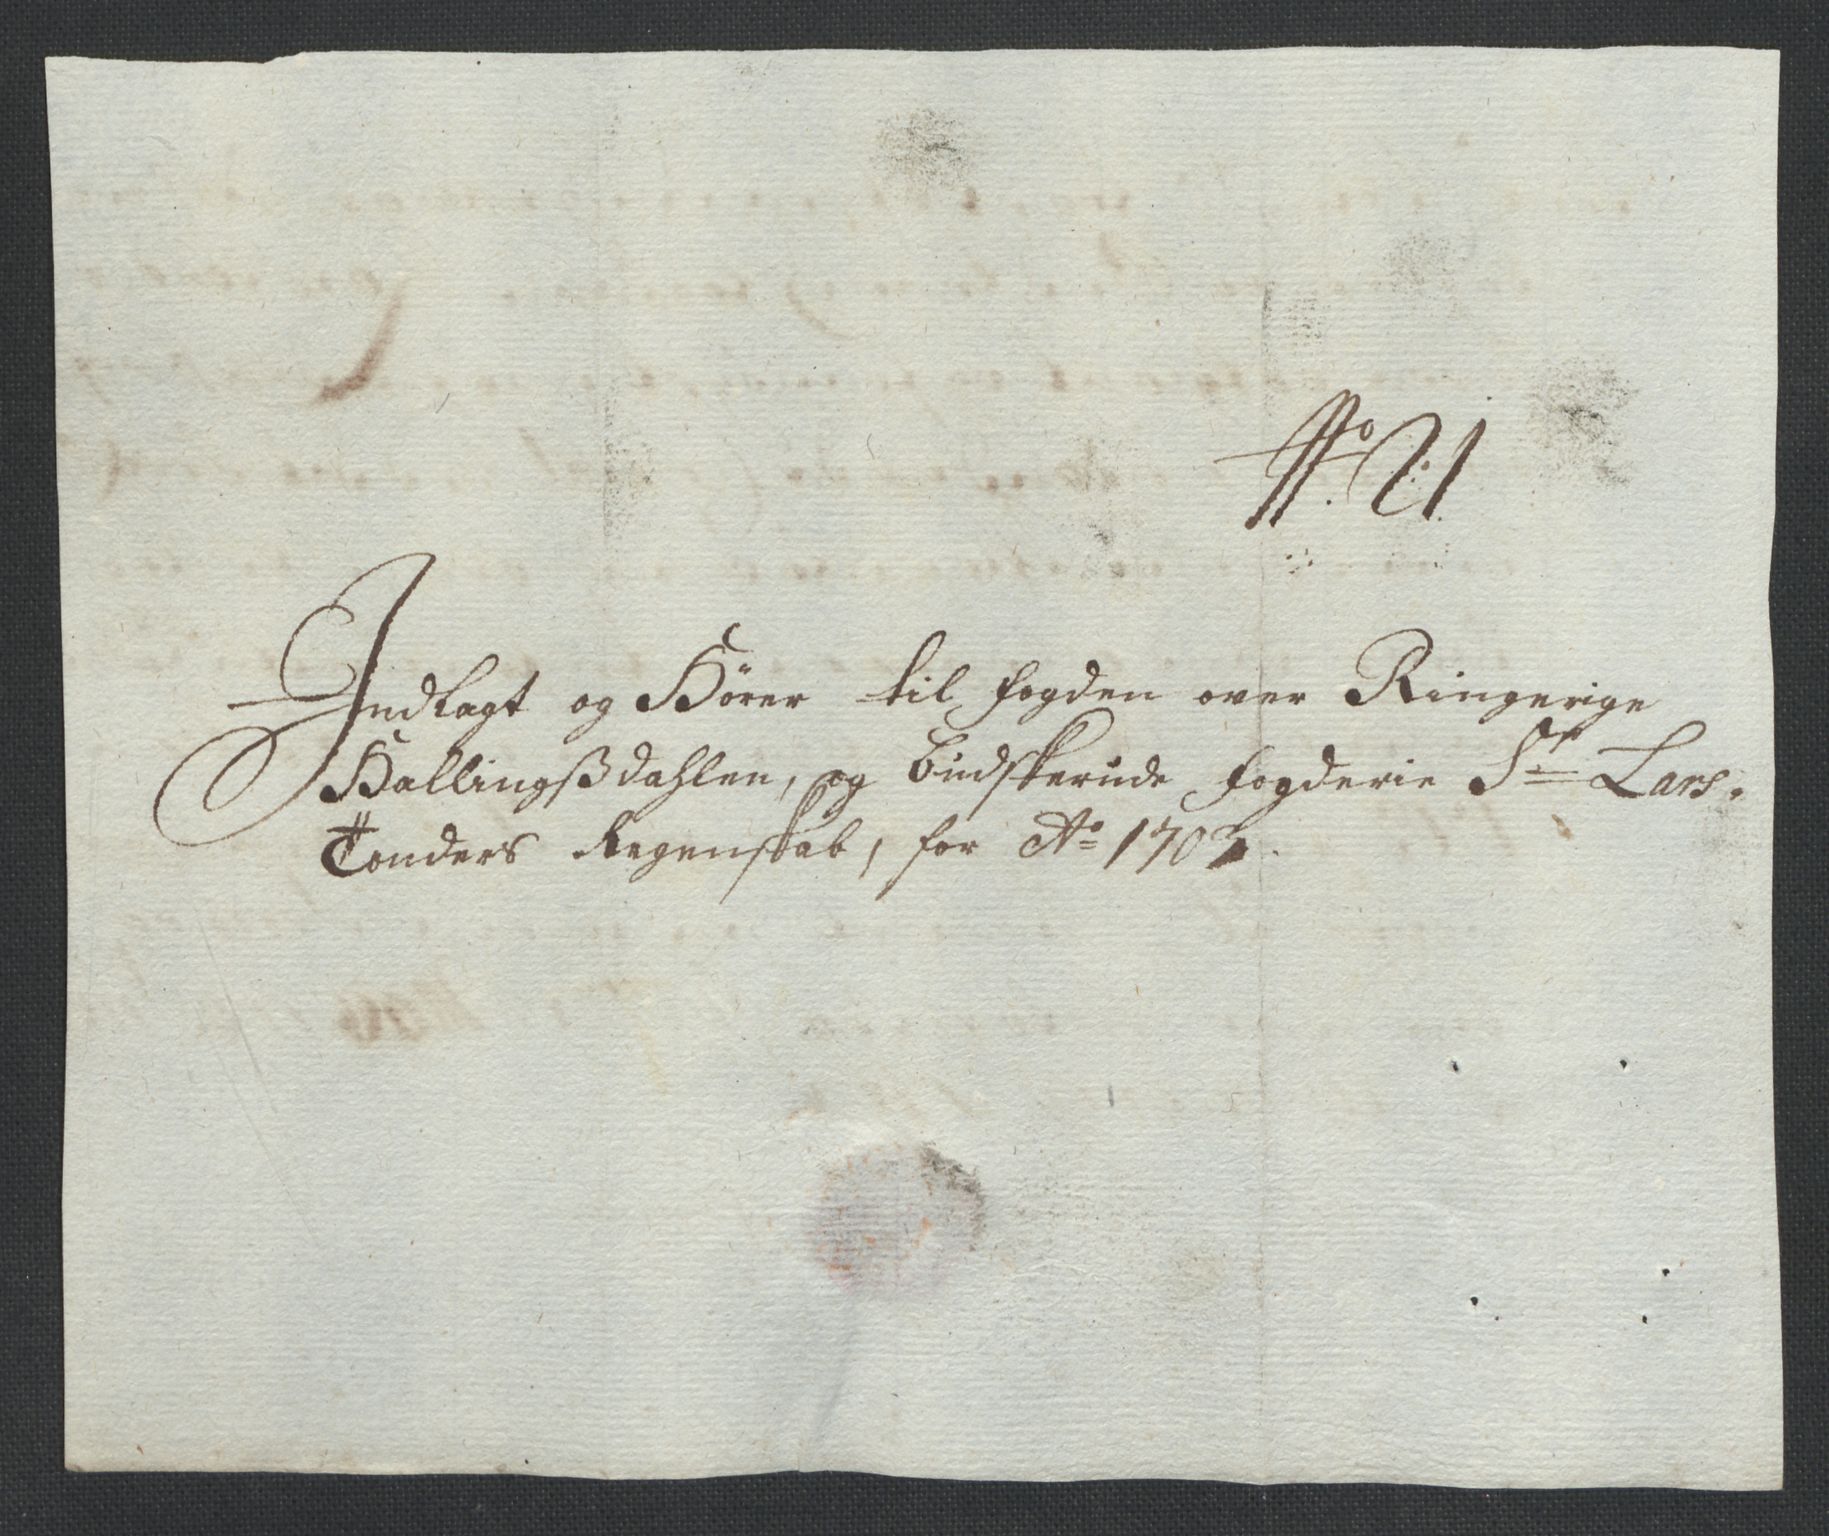 No 21
Indlagt og Hörer til fogden over Ringerige
Hallingßdahlen, og budskerude fogderie Sr Lars
Tonders Regenskab, for Ao 1703.